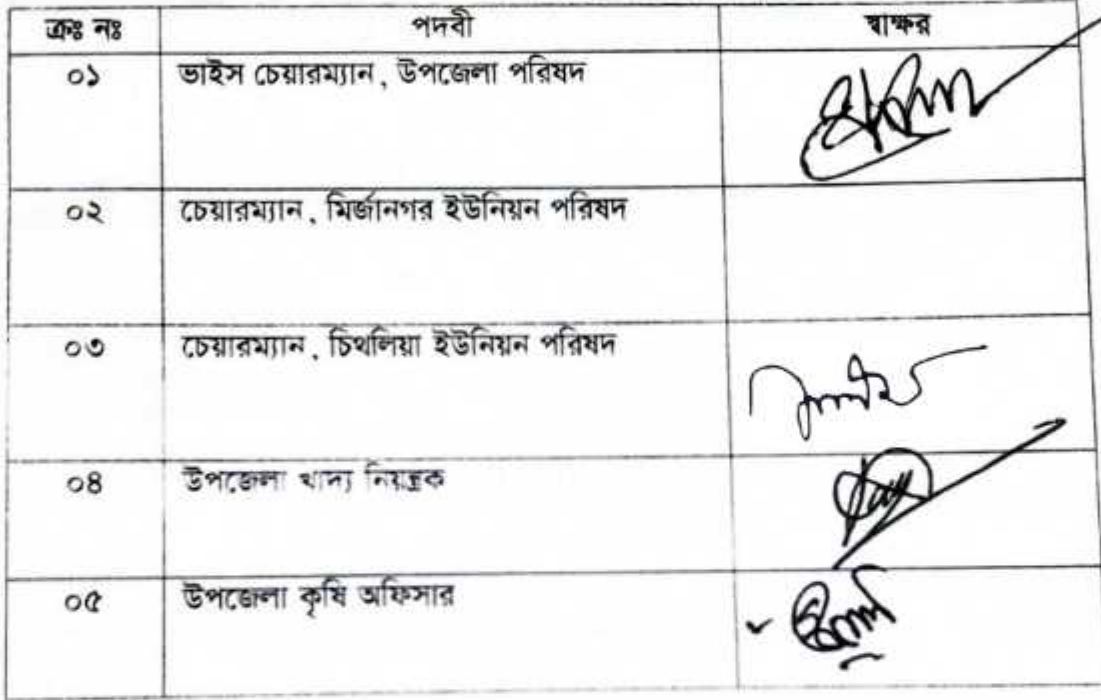 ক্রঃ নঃ পদবী স্বাক্ষর
০১ ভাইস চেয়ারম্যান, উপজেলা পরিষদ
০২ চেয়ারম্যান, মির্জানগর ইউনিয়ন পরিষদ
০৩ চেয়ারম্যান, চিথলিয়া ইউনিয়ন পরিষদ
০৪ উপজেলা খাদ্য নিয়ন্ত্রক
০৫ উপজেলা কৃষি অফিসার